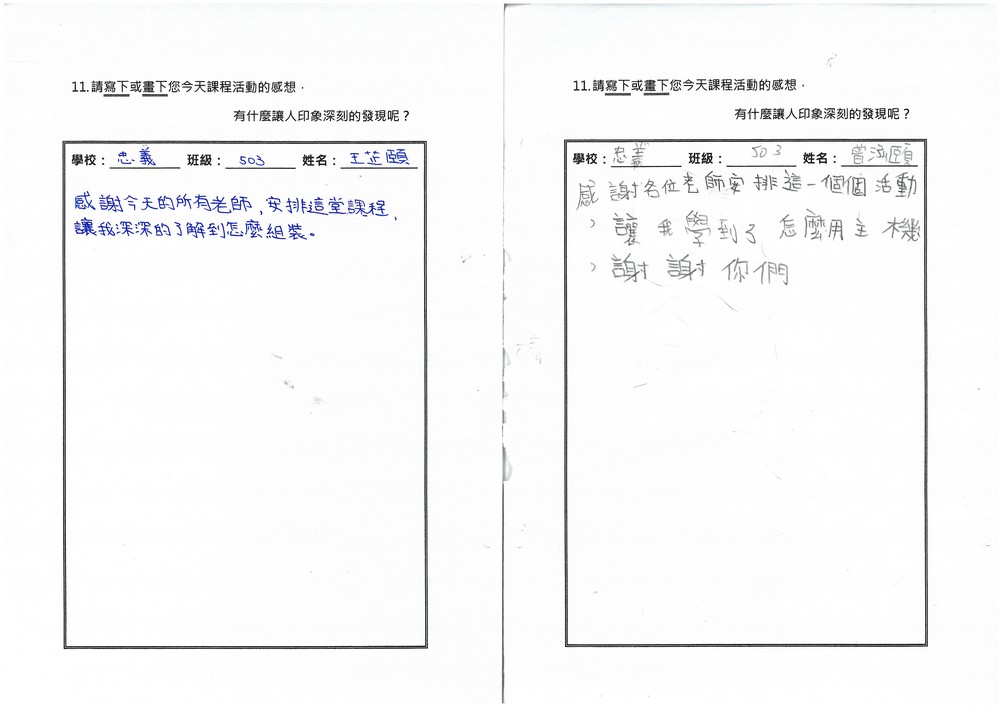 11.請寫下或畫下您今天課程活動的感想，
有什麼讓人印象深刻的發現呢？
學校：忠義 班級：503 姓名：王芷頤
感謝今天的所有老師,安排這堂課程,
讓我深深的了解到怎麼組裝。
11.請寫下或畫下您今天課程活動的感想，
有什麼讓人印象深刻的發現呢？
學校：忠義 班級：503 姓名：曾泓頤
感謝各位老師安排這一個個活動
，讓我學到了怎麼用主機
，謝謝你們